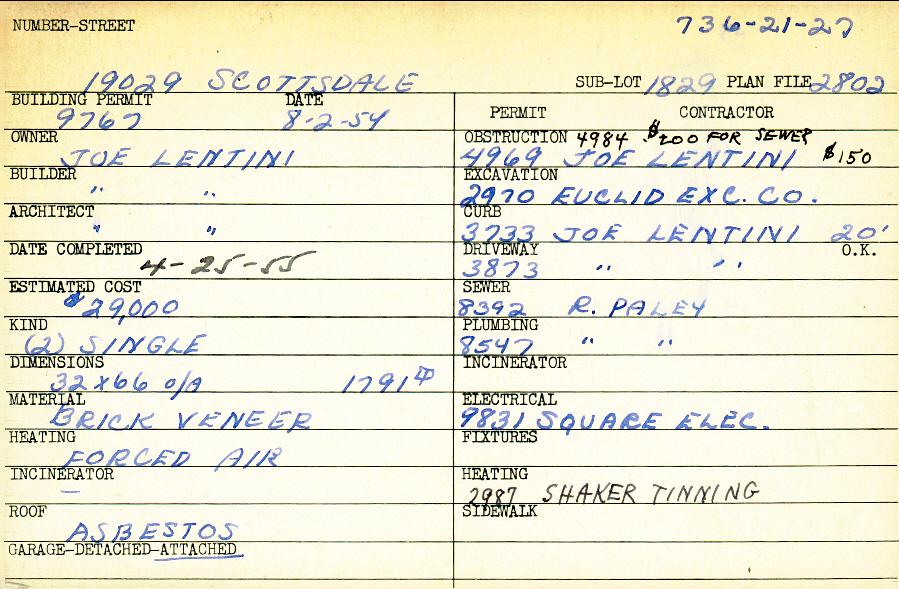 NUMBER-STREET 736-21-27
19029 SCOTTSDALE SUB-LOT 1829 PLAN FILE 2802
BUILDING PERMIT DATE
9767 8-2-54
PERMIT CONTRACTOR
OWNER
JOE LENTINI
BUILDER
" "
ARCHITECT
" "
DATE COMPLETED
4-25-55
ESTIMATED COST
$29,000
KIND
(2) SINGLE
DIMENSIONS
32x66 o/A 1791
MATERIAL
BRICK VENEER
HEATING
FORCED AIR
INCINERATOR
—
ROOF
ASBESTOS
GARAGE-DETACHED-ATTACHED
OBSTRUCTION 4984 $200 FOR SEWER
4969 JOE LENTINI $150
EXCAVATION
2970 EUCLID EXC. CO.
CURB
3733 JOE LENTINI 20'
DRIVEWAY O.K.
3873 " "
SEWER
8392 R. PALEY
PLUMBING
8547 " "
INCINERATOR
ELECTRICAL
9831 SQUARE ELEC.
FIXTURES
HEATING
2987 SHAKER TINNING
SIDEWALK